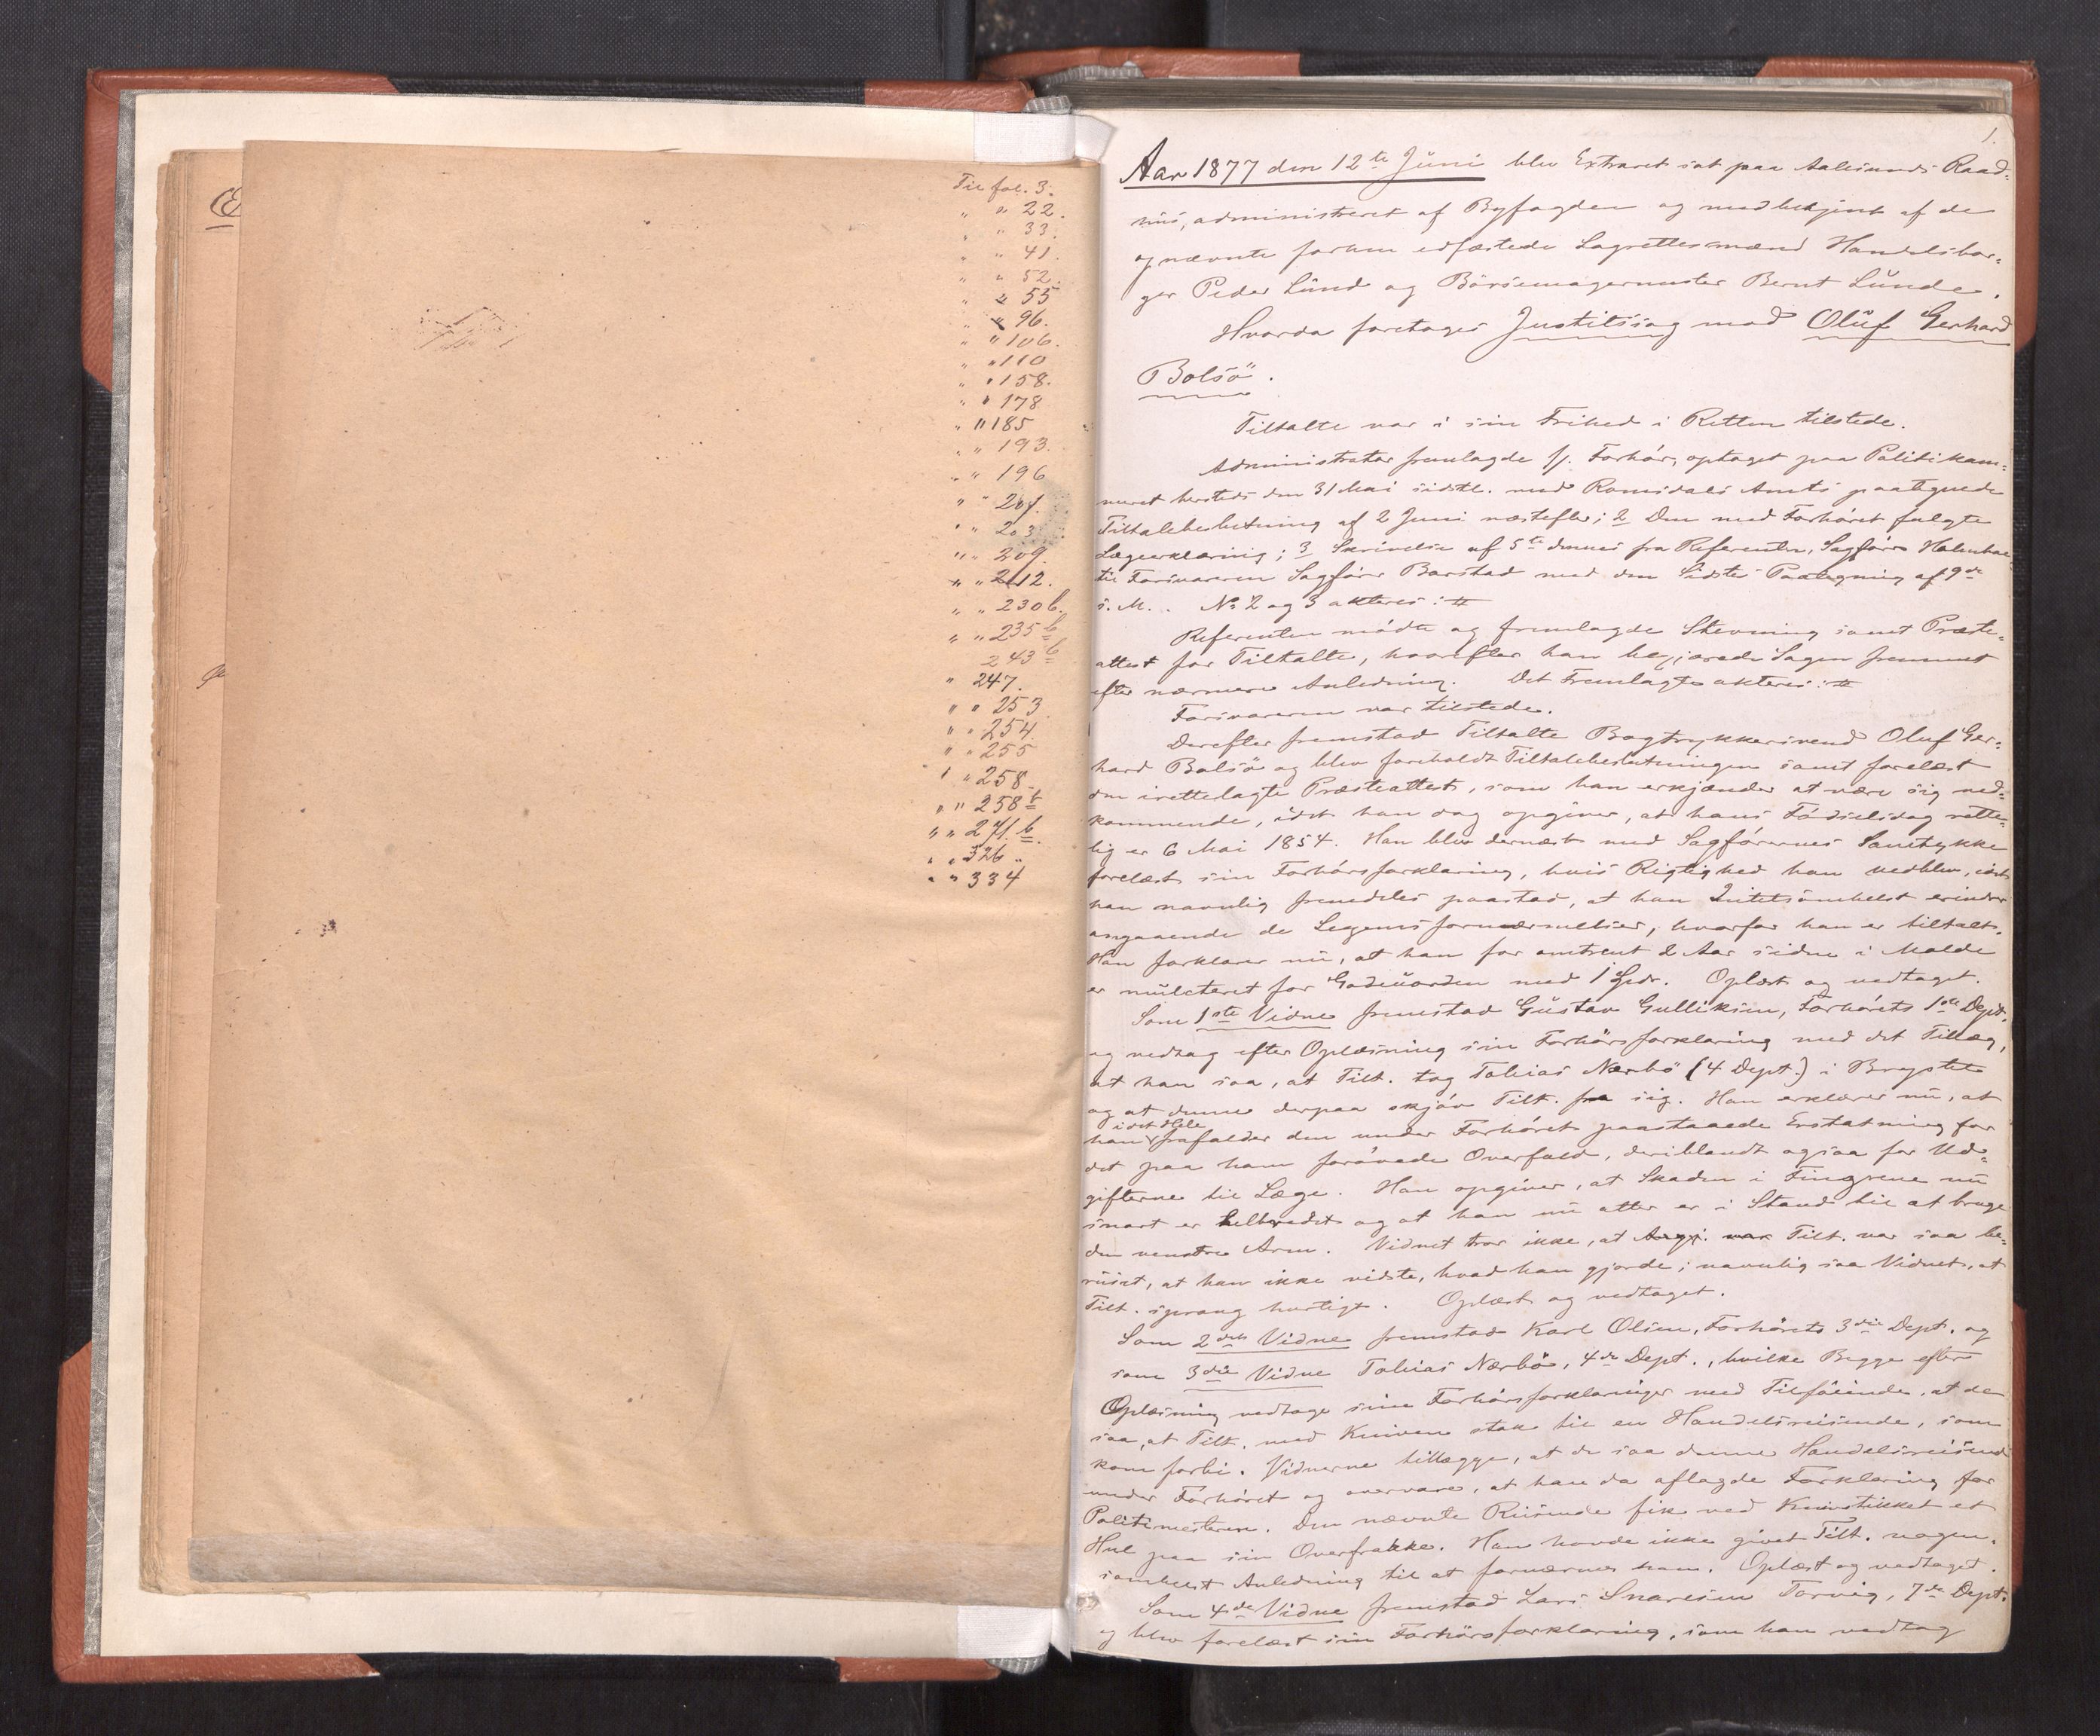 Til fol. 3.
" " 22.
" " 33.
" " 41.
" " 52.
" " 55
" " 96.
" " 106.
" " 110
" " 158.
" " 178
" " 185
" " 193.
" " 196
" " 201.
" " 203
" " 209.
" " 212.
" " 230 b.
" " 235 b
243 b
" 247.
" " 253
" " 254
" " 255
" " 258
" " 258 b
" " 271 b.
" " 326
" " 334
1.
Aar 1877 den 12te Juni blev Extraret sat paa Aalesunds Raad-
hus, administreret af Byfogden og medbetjent af de
opnævnte forhen edfæstede Lagrettesmænd Handelsbor-
ger Peder Lund og Börsemagermester Bernt Lunde.
Hvorda foretoges Justitssag mod Oluf Gerhard
Bolsö.
Tiltalte var i sin Frihed i Retten tilstede.
Administrator fremlagde 1/. Forhör, optaget paa Politikam-
meret hersteds den 31 Mai sidstl. med Romsdals Amts paategnede
Tiltalebeslutning af 2 Juni næstefter; 2 Den med Forhöret fulgte
Lægeerklæring; 3 Skrivelse af 5te dennes fra Referenten, Sagförer Holmboe
til Forsvareren Sagförer Barstad med den Sidstes Paategning af 9de
s. M. . No 2 og 3 akteres :#
Referenten mödte og fremlagde Stevning samt Præste-
attest for Tiltalte, hvorefter han begjærede Sagen fremmet
efter nærmere Anledning. Det Fremlagte akteres :#
Forsvareren var tilstede.
Derefter fremstod Tiltalte Bogtrykkersvend Oluf Ger-
hard Bolsö og blev foreholdt Tiltalebeslutningen samt forelæst
den iretteلagte Præsteattest, som han erkjender at være sig ved-
kommende, idet han dog opgiver, at hans Födselsdag rette-
lig er 6 Mai 1854. Han blev dernæst med Sagförernes Samtykke
forelæst sin Forhörsforklaring, hvis Rigtighed han vedblev, idet
han navnlig fremdeles paastod, at han Intetsomhelst erindrer
angaaende de Legemsfornærmelser, hvorfor han er tiltalt.
Han forklarer nu, at han for omtrent 2 Aar siden i Molde
er mulcteret for Gadeuorden med 1 Spdr. Oplæst og vedtaget.
Som 1ste Vidne fremstod Gustav Gulliksen, Forhörets 1ste Dept.
og vedtog efter Oplæsning sin Forhörsforklaring med det Tillæg,
at han saa, at Tilt. tog Tobias Nærbö (4 Dept.) i Brystet
og at denne derpaa skjöv Tilt. fra sig. Han erklærer nu, at
i det Hele
han frafalder den under Forhöret paastaaede Erstatning for
det paa ham forövede Overfald, deriblandt ogsaa for Ud-
gifterne til Læge. Han opgiver, at Skaden i Fingrene nu
snart er helbredet og at han nu atter er i Stand til at bruge
den venstre Arm. Vidnet tror ikke, at Tilt. var saa be-
ruset, at han ikke vidste, hvad han gjorde; navnlig saa Vidnet, at
Tilt. sprang hurtigt. Oplæst og vedtaget.
Som 2det Vidne fremstod Karl Olsen, Forhörets 3die Dept. og
som 3die Vidne Tobias Nærbö, 4de Dept., hvilke Begge efter
Oplæsning vedtoge sine Forhörsforklaringer med Tilföiende, at de
saa, at Tilt. med Kniven stak til en Handelsreisende, som
kom forbi. Vidnerne tillægge, at de saa denne Handelsreisende
under Forhöret og overvare, at han da aflagde Forklaring for
Politimesteren. Den nævnte Reisende fik ved Knivstikket et
Hul paa sin Overfrakke. Han havde ikke givet Tilt. nogen-
somhelst Anledning til at fornærme ham. Oplæst og vedtaget.
Som 4de Vidne fremstod Lars Torvig, 7de Dept.
og blev forelæst sin Forhörsforklaring, som han vedtog